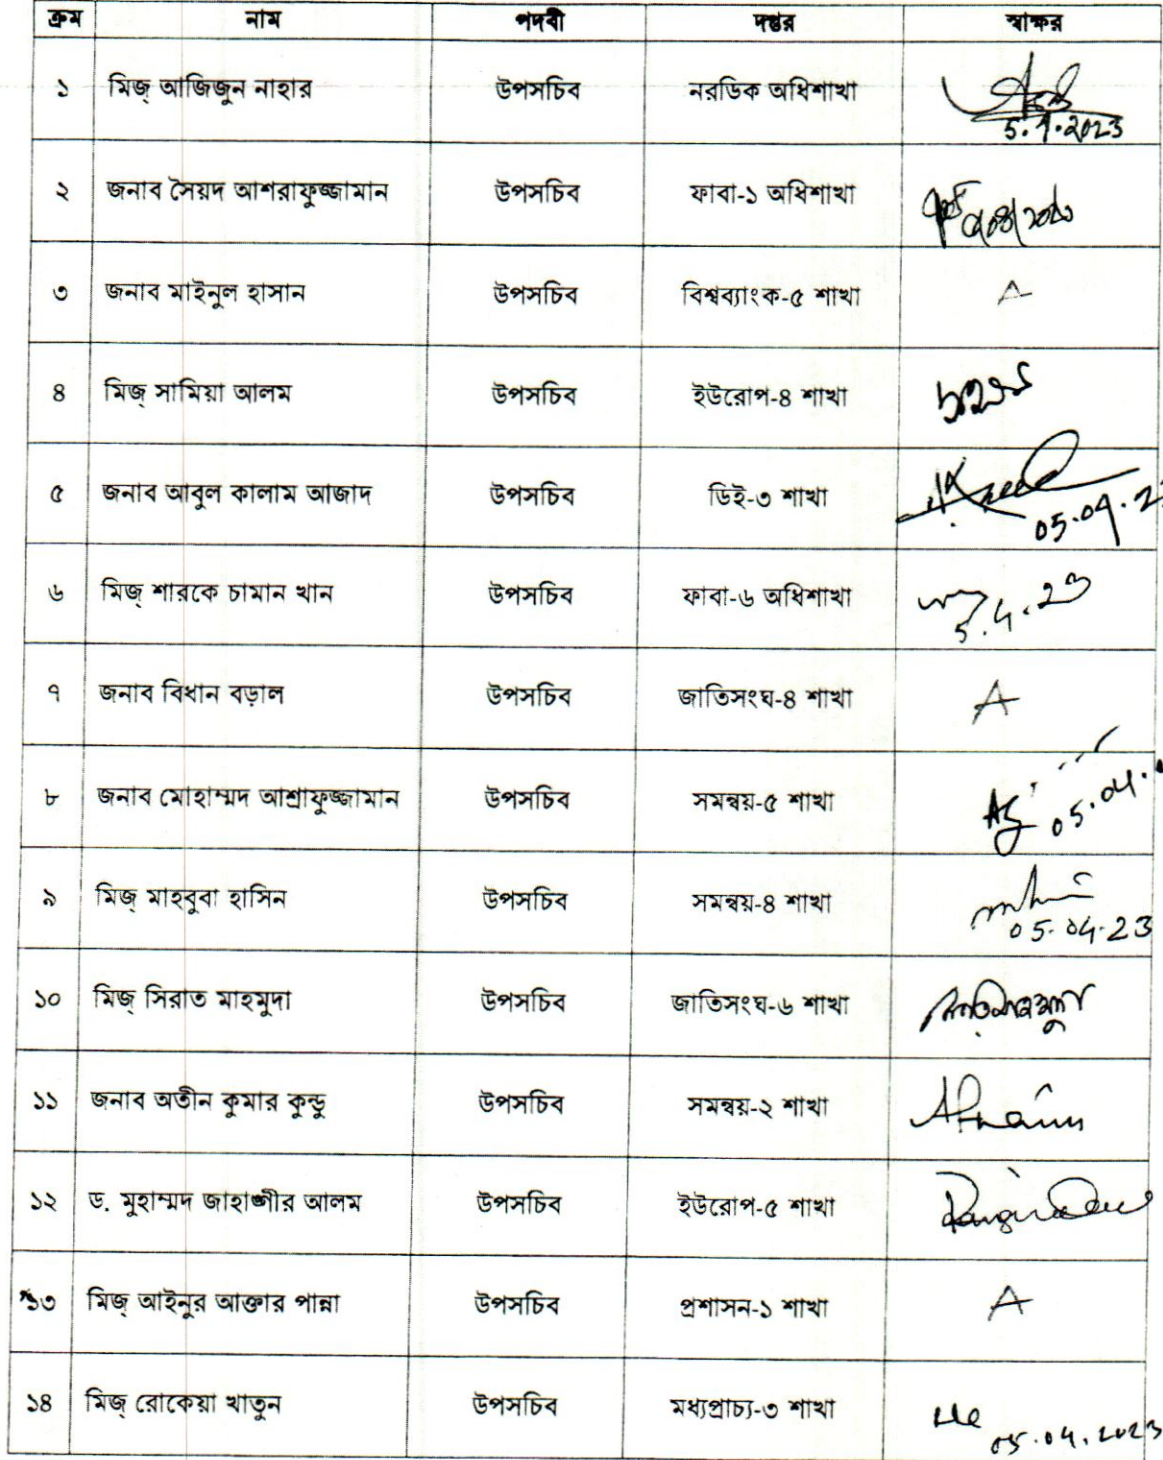 ক্রম নাম পদবী দপ্তর স্বাক্ষর
১ মিজ্ আজিজুন নাহার উপসচিব নরডিক অধিশাখা
5.9.2023
২ জনাব সৈয়দ আশরাফুজ্জামান উপসচিব ফাবা-১ অধিশাখা
৩ জনাব মাইনুল হাসান উপসচিব বিশ্বব্যাংক-৫ শাখা A
৪ মিজ্ সামিয়া আলম উপসচিব ইউরোপ-৪ শাখা
৫ জনাব আবুল কালাম আজাদ উপসচিব ডিই-৩ শাখা
৬ মিজ্ শারকে চামান খান উপসচিব ফাবা-৬ অধিশাখা
5.4.23
৭ জনাব বিধান বড়াল উপসচিব জাতিসংঘ-৪ শাখা A
৮ জনাব মোহাম্মদ আশ্রাফুজ্জামান উপসচিব সমন্বয়-৫ শাখা
05.04.
৯ মিজ্ মাহবুবা হাসিন উপসচিব সমন্বয়-৪ শাখা
05.04.23
১০ মিজ্ সিরাত মাহমুদা উপসচিব জাতিসংঘ-৬ শাখা
১১ জনাব অতীন কুমার কুন্ডু উপসচিব সমন্বয়-২ শাখা
১২ ড. মুহাম্মদ জাহাঙ্গীর আলম উপসচিব ইউরোপ-৫ শাখা
১৩ মিজ্ আইনুর আক্তার পান্না উপসচিব প্রশাসন-১ শাখা A
১৪ মিজ্ রোকেয়া খাতুন উপসচিব মধ্যপ্রাচ্য-৩ শাখা
05.04.2023